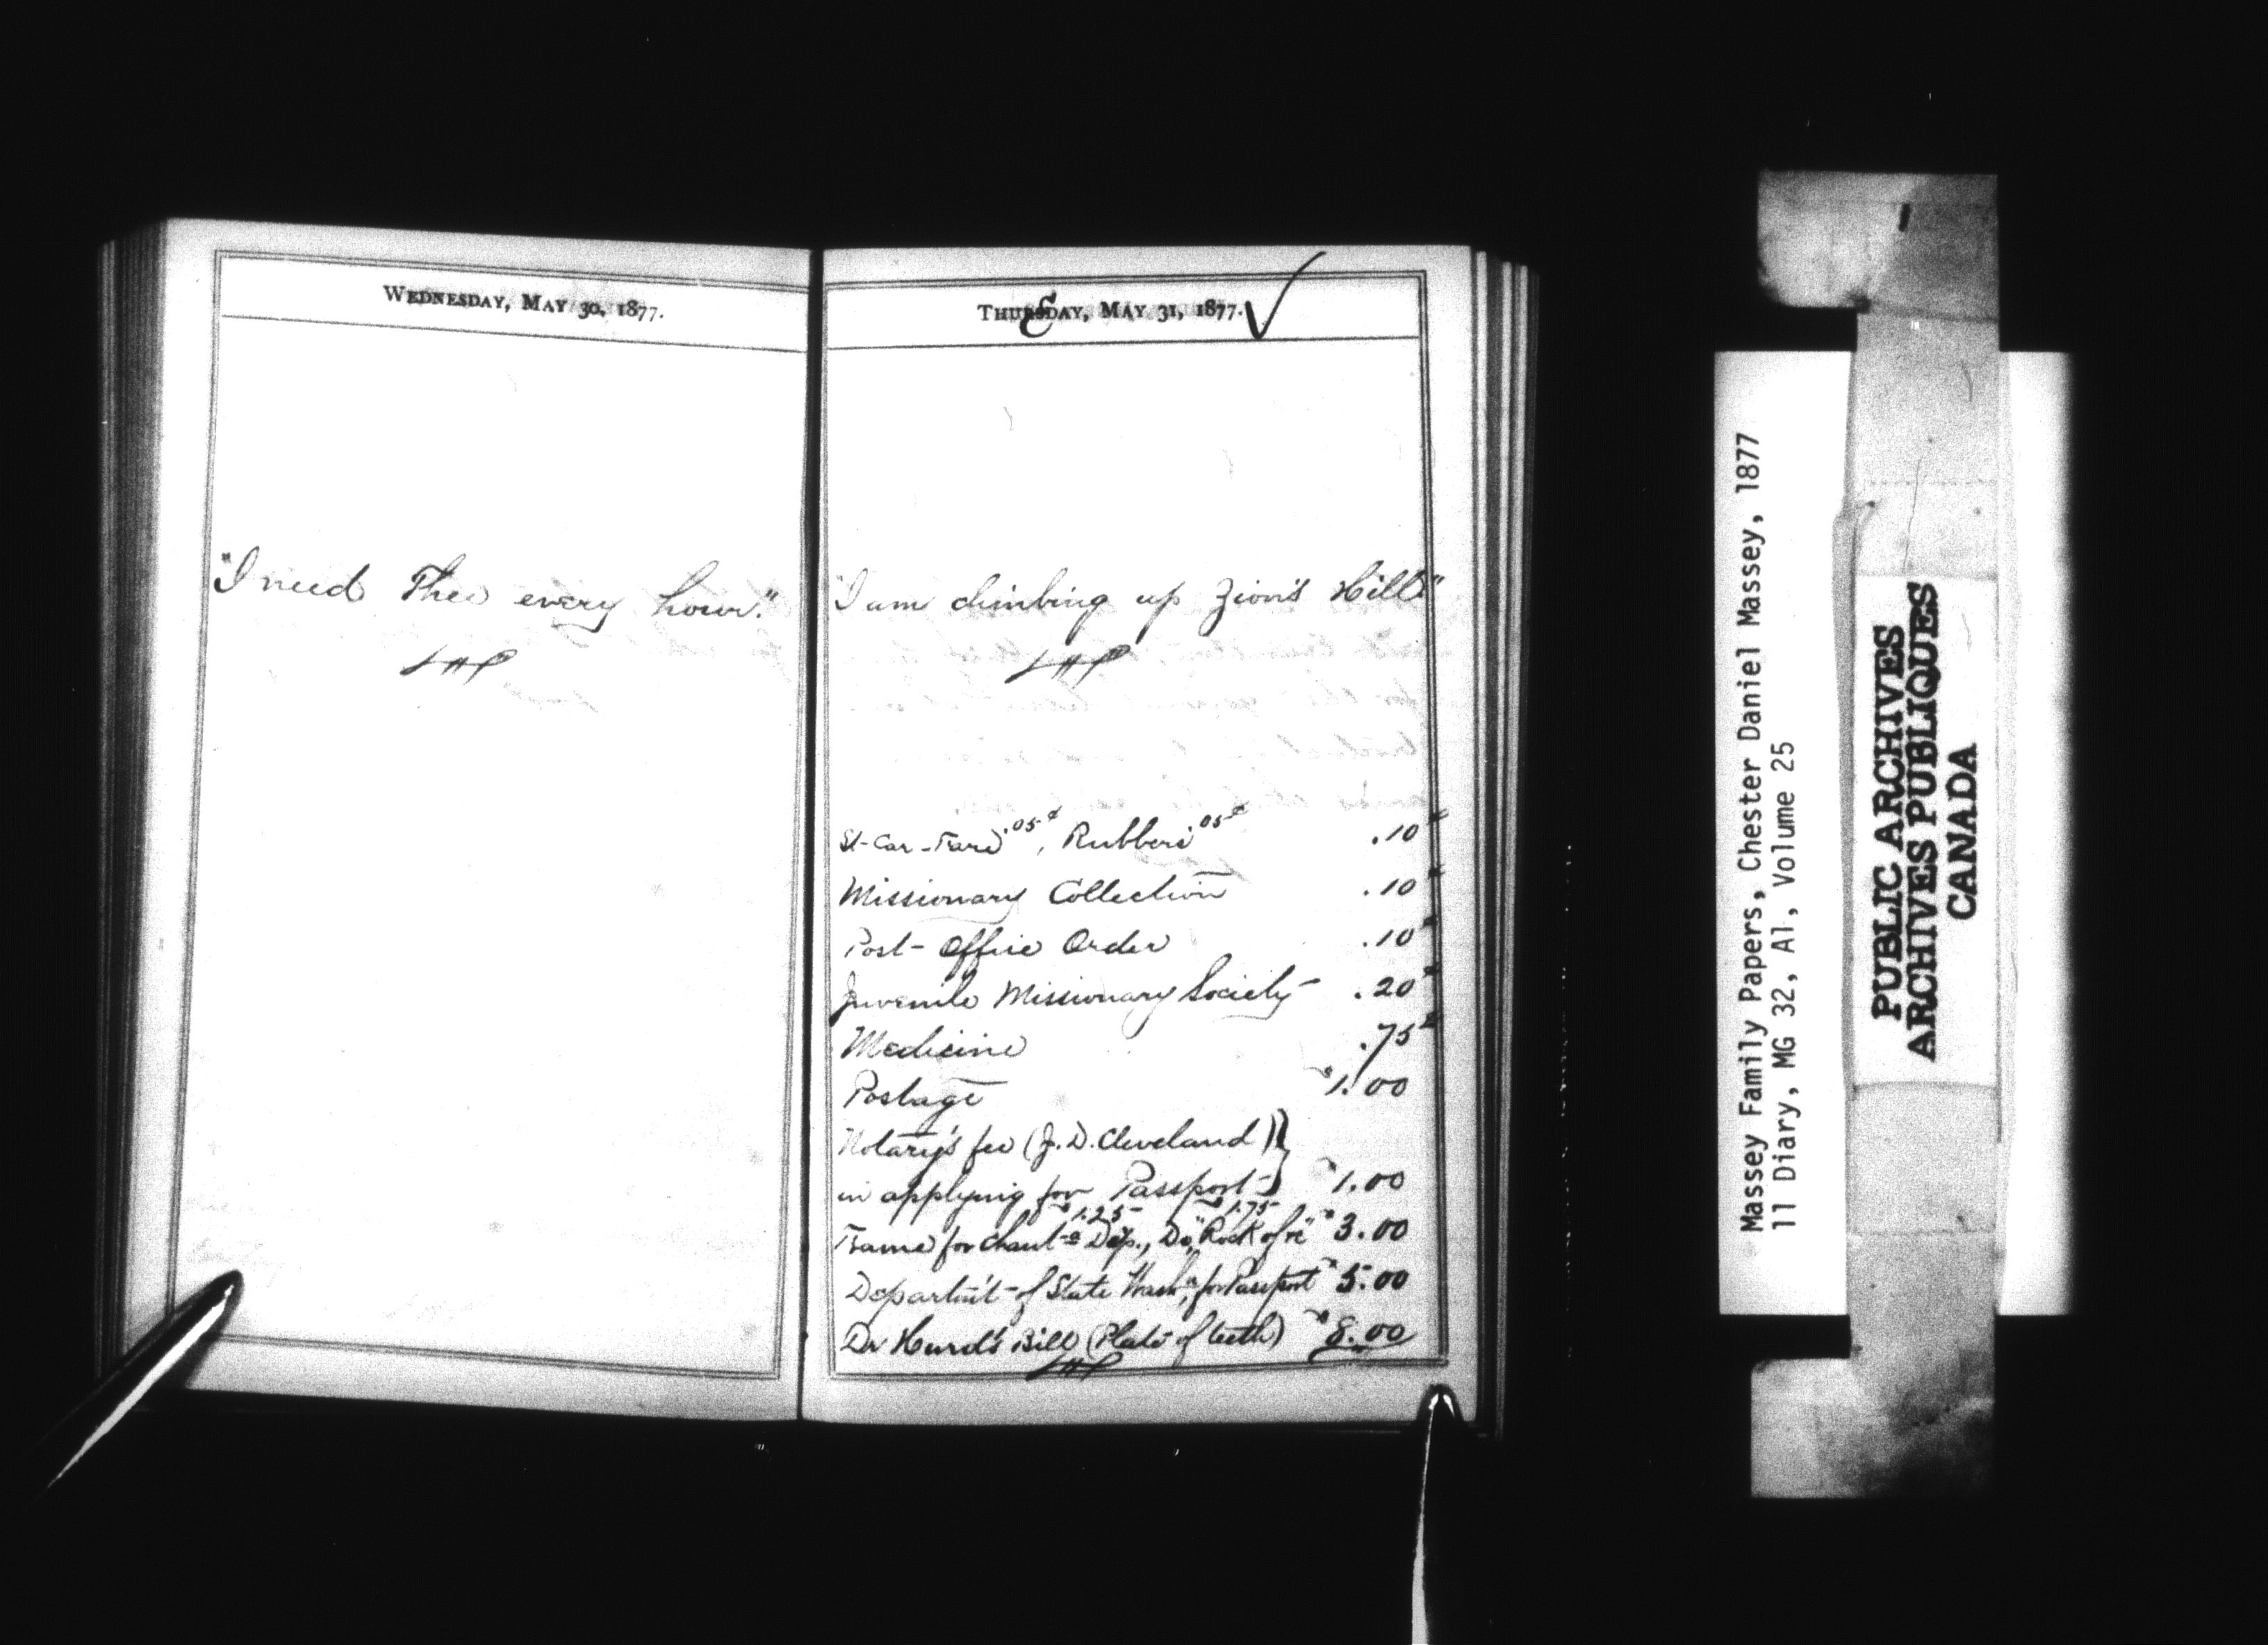 WEDNESDAY, MAY 30, 1877.
"I need Thee every hour."
THURSDAY, MAY 31, 1877.
"I am climbing up Zion's Hill"
St-Car-Fare .05¢, Rubbers .05¢ .10¢
Missionary Collection .10¢
Post-Office Order .10¢
Juvenile Missionary Society .20¢
Medicine .75¢
Postage $1.00
Notary's fee (J. D. Cleveland)
in applying for Passport $1.00
1.25 1.75
Frame for Chaut-a Dip., Do, "Rock of" $3.00
Departm't of State Wash'n, for Passport $5.00
Dr Hurd's Bill (Plate of teeth) $8.00
Massey Family Papers, Chester Daniel Massey, 1877
11 Diary, MG 32, A1, Volume 25
PUBLIC ARCHIVES
ARCHIVES PUBLIQUES
CANADA